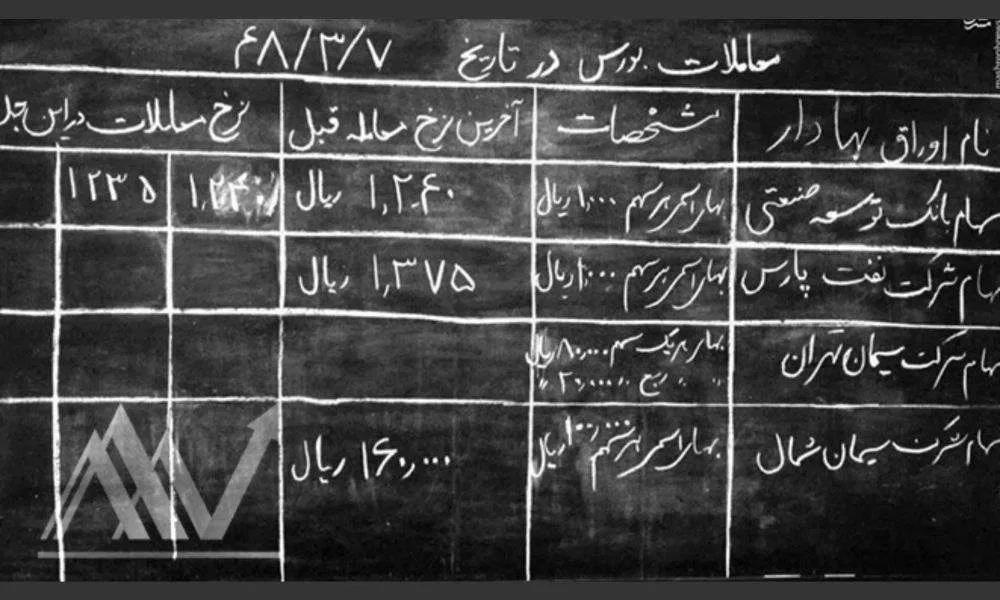 معاملات بورس در تاریخ ۴۸/۳/۷
نام اوراق بهادار مشخصات آخرین نرخ معامله قبل نرخ معاملات در این جل
سهام بانک توسعه صنعتی بهاء اسمی هر سهم ۱,۰۰۰ ریال ۱,۲۶۰ ریال ۱۲۳۵
سهام شرکت نفت پارس بهاء اسمی هر سهم ۱,۰۰۰ ریال ۱,۳۷۵ ریال
سهام شرکت سیمان تهران بهاء هر یک سهم ۸۰,۰۰۰ ریال
〃 〃 ربع 〃 ۲۰,۰۰۰ 〃
سهام شرکت سیمان شمال بهاء اسمی هر سهم ۱۰۰,۰۰۰ ریال ۱۶۰,۰۰۰ ریال